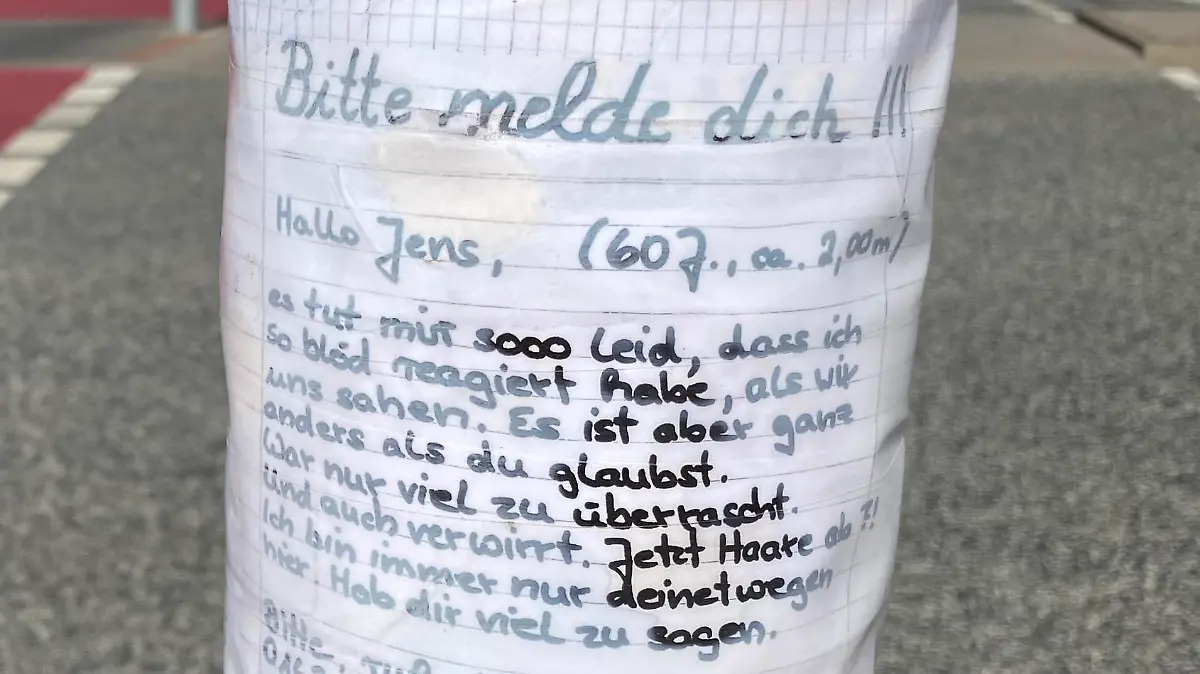 Bitte melde dich !!!
Hallo Jens, (60 J., ca. 2,00m)
es tut mir sooo leid, dass ich
so blöd reagiert habe, als wir
uns sahen. Es ist aber ganz
anders als du glaubst.
War nur viel zu überrascht.
Und auch verwirrt. Jetzt Haare ab ?!
Ich bin immer nur deinetwegen
hier. Hab dir viel zu sagen.
Bitte,